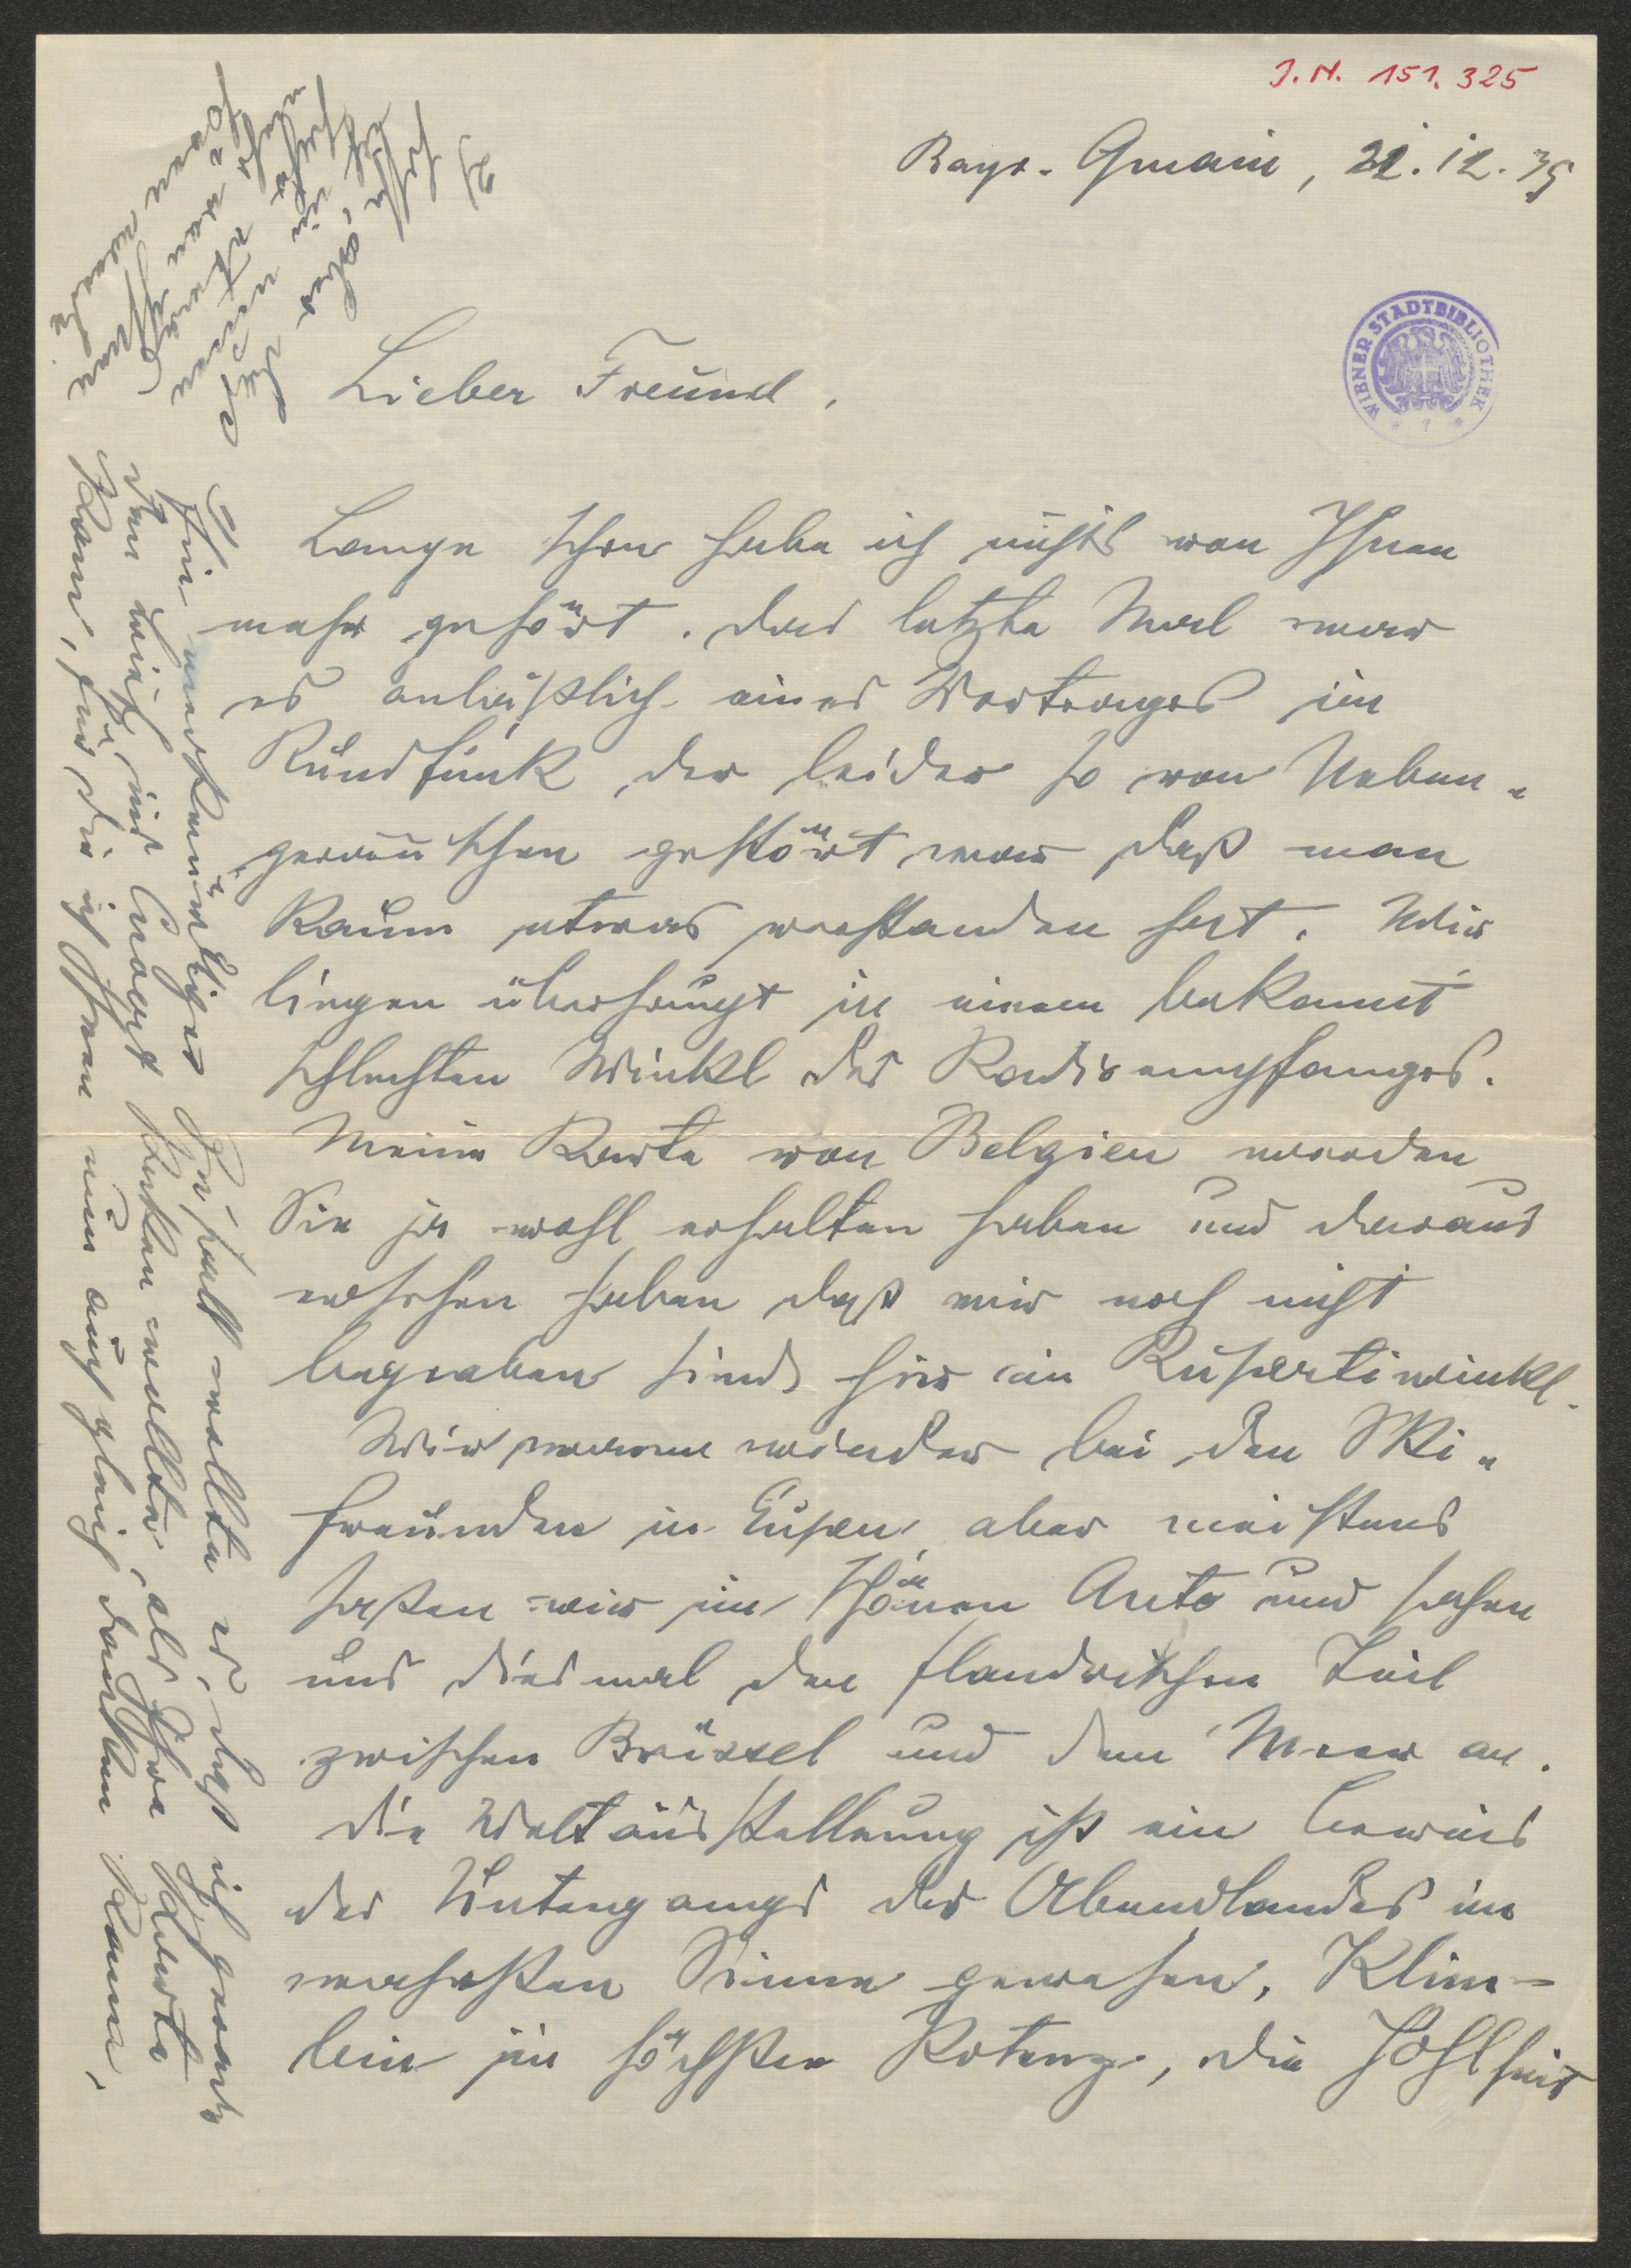 J.N. 151.325
Bayr. Gmain, 21.12.35
WIENER STADTBIBLIOTHEK
Lieber Freund,
Lange schon habe ich nichts von Ihnen
mehr gehört. Das letzte Mal war
es anläßlich eines Vortrages im
Rundfunk der leider so von Neben-
geräuschen gestört war daß man
kaum etwas verstanden hat. Wir
liegen überhaupt in einem bekannt
schlechten Winkl des Radioempfanges.
Meine Karte von Belgien werden
Sie ja wohl erhalten haben und daraus
ersehen haben daß wir noch nicht
begraben sind hier im Rupertiwinkl.
Wir waren wieder bei den Ski-
freunden in Eupen, aber meistens
saßen wir im schönen Auto und sahen
uns diesmal den flandrischen Teil
zwischen Brüssel und dem Meer an.
Die Weltausstellung ist ein Beweis
des Untergangs des Abendlandes im
wahrsten Sinne gewesen. Klim-
bim in höchster Potenz, die Hohlheit
Ein merkwürdiger Zufall wollte es, daß ich gerade
den Brief zur Post geben wollte, als Ihre Karte
kam, für die ich Ihnen nun auch gleich danken kann.